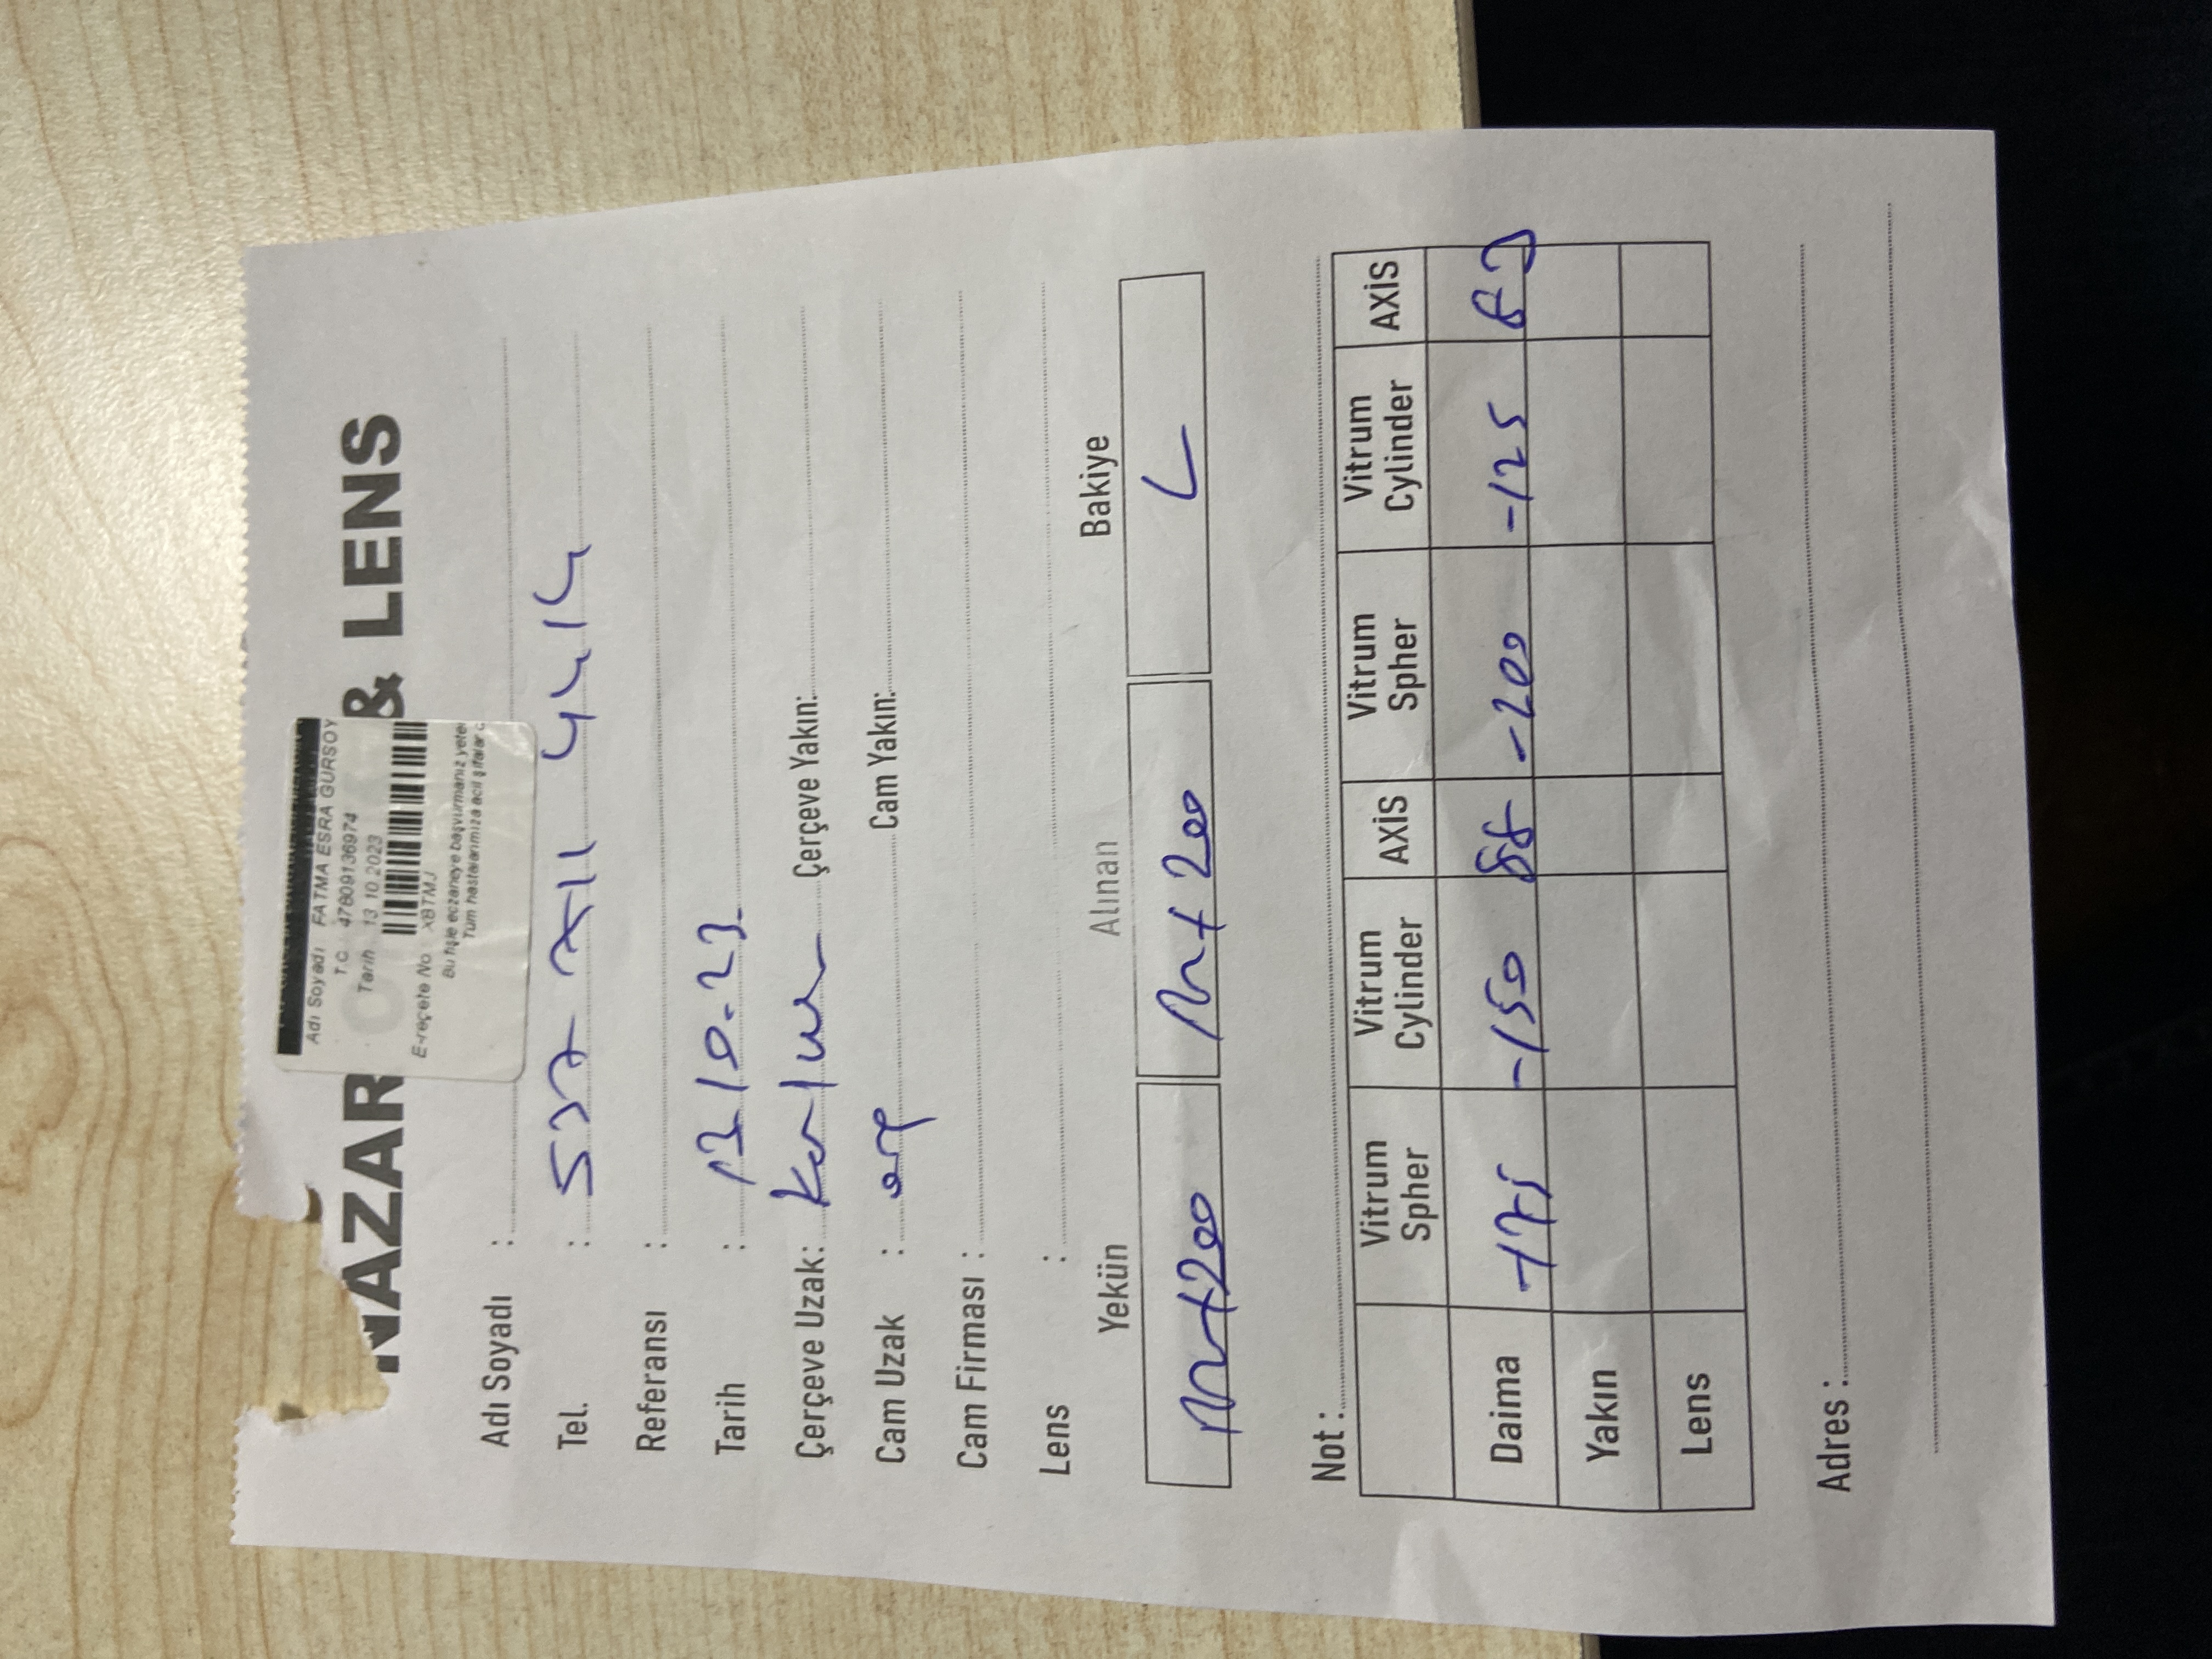 Adı Soyadı FATMA ESRA GURSOY
T.C 47809136974
Tarih 13 10 2023
E-reçete No X8TMJ
Bu fişle eczaneye başvurmanız yete
Tüm hastalarımıza acil şifalar
NAZAR & LENS
Adı Soyadı :
Tel. : 537 711 4414
Referansı :
Tarih : 13 10.23
Çerçeve Uzak: Çerçeve Yakın:
Cam Uzak : Cam Yakın:
Cam Firması :
Lens :
Yekün Alınan Bakiye
+200 + 200
Not :
Vitrum Spher Vitrum Cylinder AXİS Vitrum Spher Vitrum Cylinder AXİS
Daima -175 -150 88 -200 -125
Yakın
Lens
Adres :